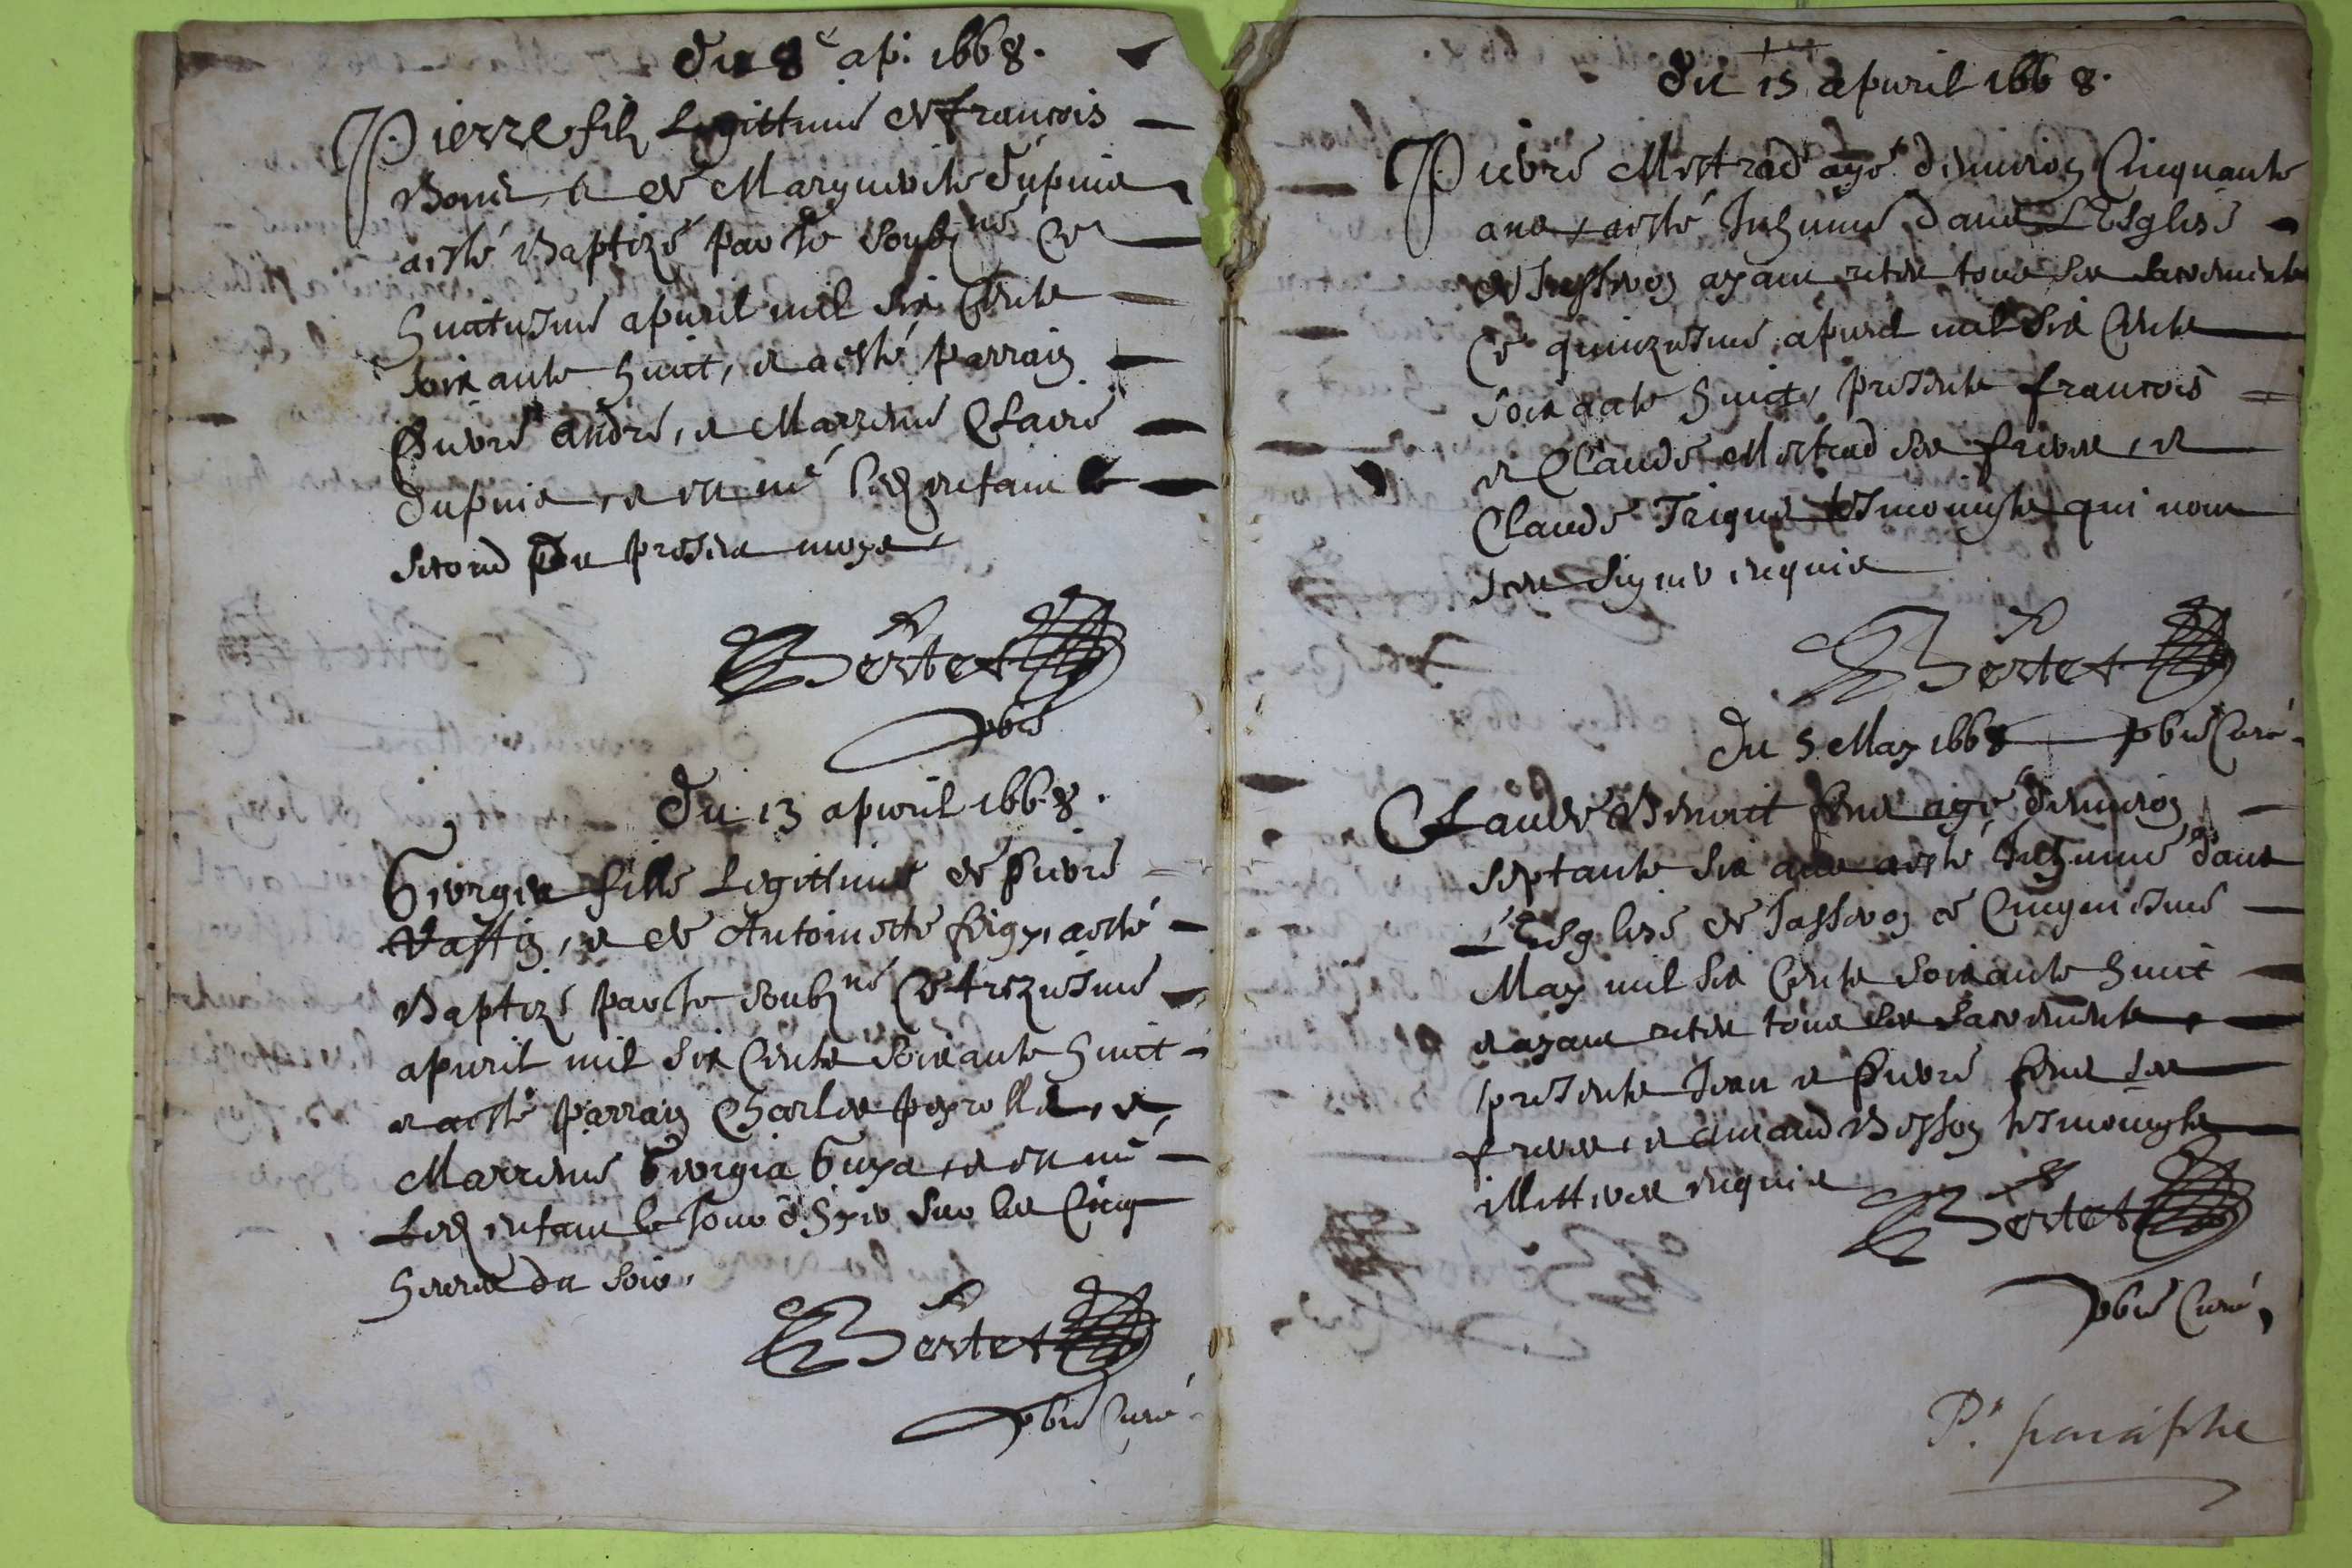 Du 8e ap: 1668.
Pierre fils Legittime de francois
et de Marguerite Dupuis
a esté Baptizé par Le soubz.né Ce
huictiesme apuril mil six Cents
soixante huict, et a esté parrain
Pierre André, et Marrenne Claire
dupuis, et est né led enfant le
second du present moys
Bertet
pbre
Du 13 apuril 1668.
Georgea fille Legittime de pierre
et de Antoinette a esté
Baptizé par Le soubz.né Ce trezuesme
apuril mil six Cents soixante huict
et a esté parrain Charles peyrolle, et
Marrenne Georgia Guya, et est né
Led enfant le Jour d'hyer sur les Cinq
heures du soir,
Bertet
pbre Curé
Du 15 apuril 1668.
Pierre Mestrad agé d'enuiron Cinquante
ans, a esté Inhumé dans L'Esglise
de ayant receu tous les sacrements
Ce quinziesme apuril mil six Cents
soixante huict, presents francois
et Claude Mestrad ses freres, et
Claude Trigue tesmoingts qui nont
sceu signer enquis
Bertet
pbre Curé
Du 5 May 1668
Claude Benoit agé d'enuiron
septante six ans a esté Inhumé dans
l'Esglise de Ce Cinquiesme
May mil six Cents soixante huict
et ayant receu tous les sacrements,
presents Jean et pierre ses
freres, et Besson tesmoingts
illitteres enquis
Bertet
pbre Curé,
Pr. paraphe